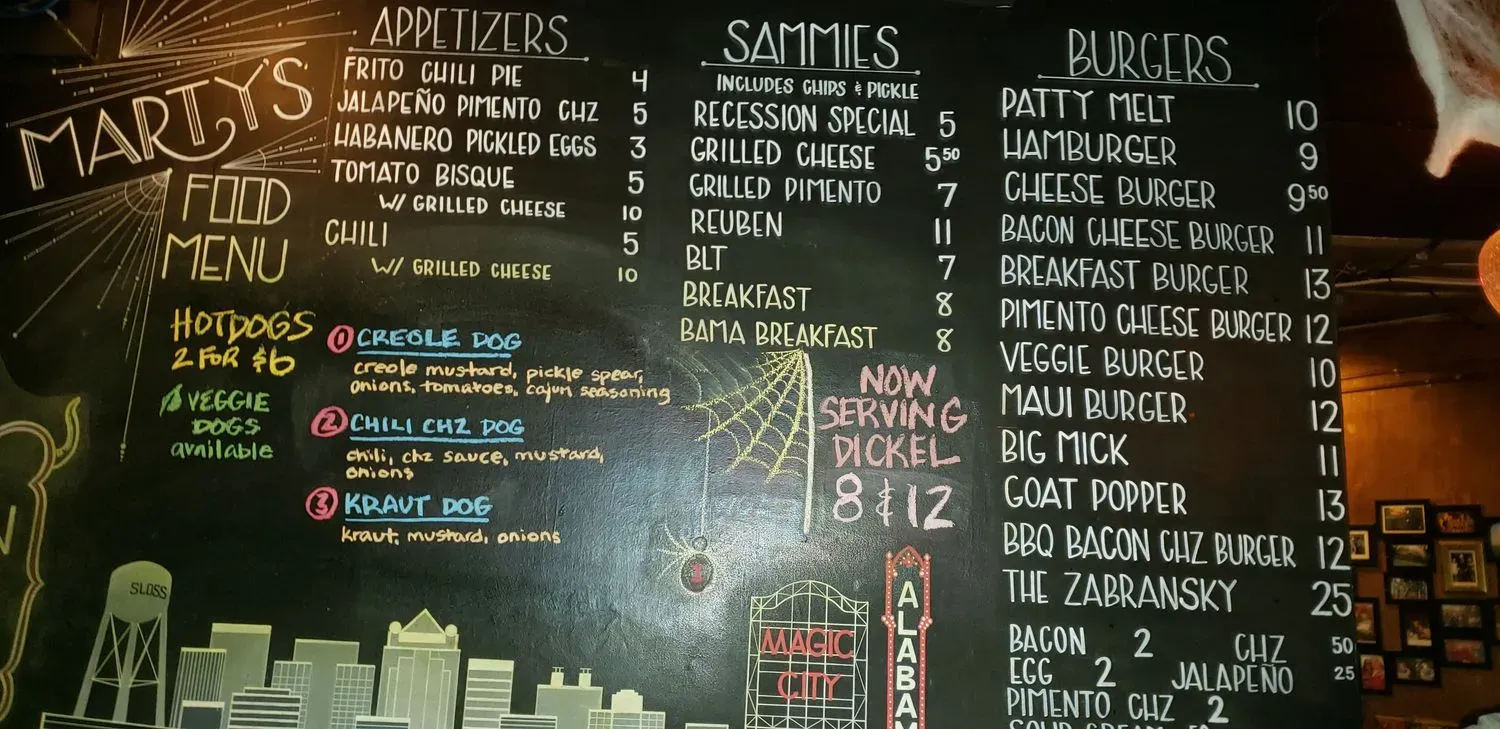 MARTY'S
FOOD
MENU
APPETIZERS
FRITO CHILI PIE 4
JALAPEÑO PIMENTO CHZ 5
HABANERO PICKLED EGGS 3
TOMATO BISQUE 5
W/ GRILLED CHEESE 10
CHILI 5
W/ GRILLED CHEESE 10
HOTDOGS
2 FOR $6
VEGGIE
DOGS
available
1 CREOLE DOG
creole mustard, pickle spear,
onions, tomatoes, cajun seasoning
2 CHILI CHZ DOG
chili, chz sauce, mustard,
onions
3 KRAUT DOG
kraut, mustard, onions
SAMMIES
INCLUDES CHIPS & PICKLE
RECESSION SPECIAL 5
GRILLED CHEESE 5 50
GRILLED PIMENTO 7
REUBEN 11
BLT 7
BREAKFAST 8
BAMA BREAKFAST 8
NOW
SERVING
DICKEL
8 & 12
BURGERS
PATTY MELT 10
HAMBURGER 9
CHEESE BURGER 9 50
BACON CHEESE BURGER 11
BREAKFAST BURGER 13
PIMENTO CHEESE BURGER 12
VEGGIE BURGER 10
MAUI BURGER 12
BIG MICK 11
GOAT POPPER 13
BBQ BACON CHZ BURGER 12
THE ZABRANSKY 25
BACON 2 CHZ 50
EGG 2 JALAPEÑO 25
PIMENTO CHZ 2
SLOSS
MAGIC
CITY
ALABAM